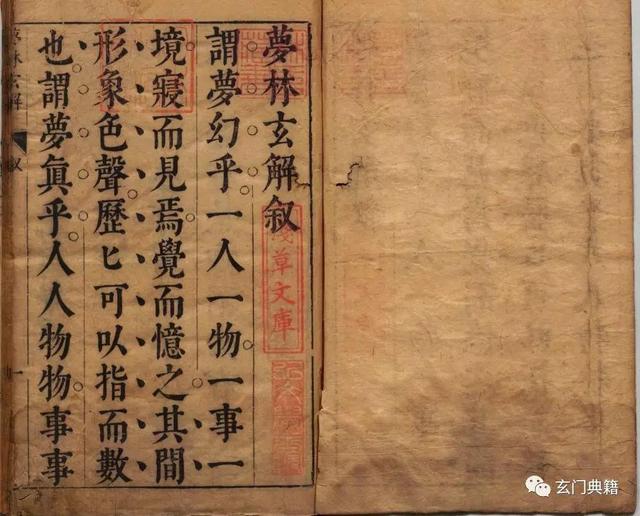 夢林玄解叙
謂夢幻乎一人一物一事一
境寢而見焉覺而憶之其間
形象色聲歷匕可以指而數
也謂夢眞乎人人物物事事
淺草文庫
夢林玄解
叙
一
玄门典籍